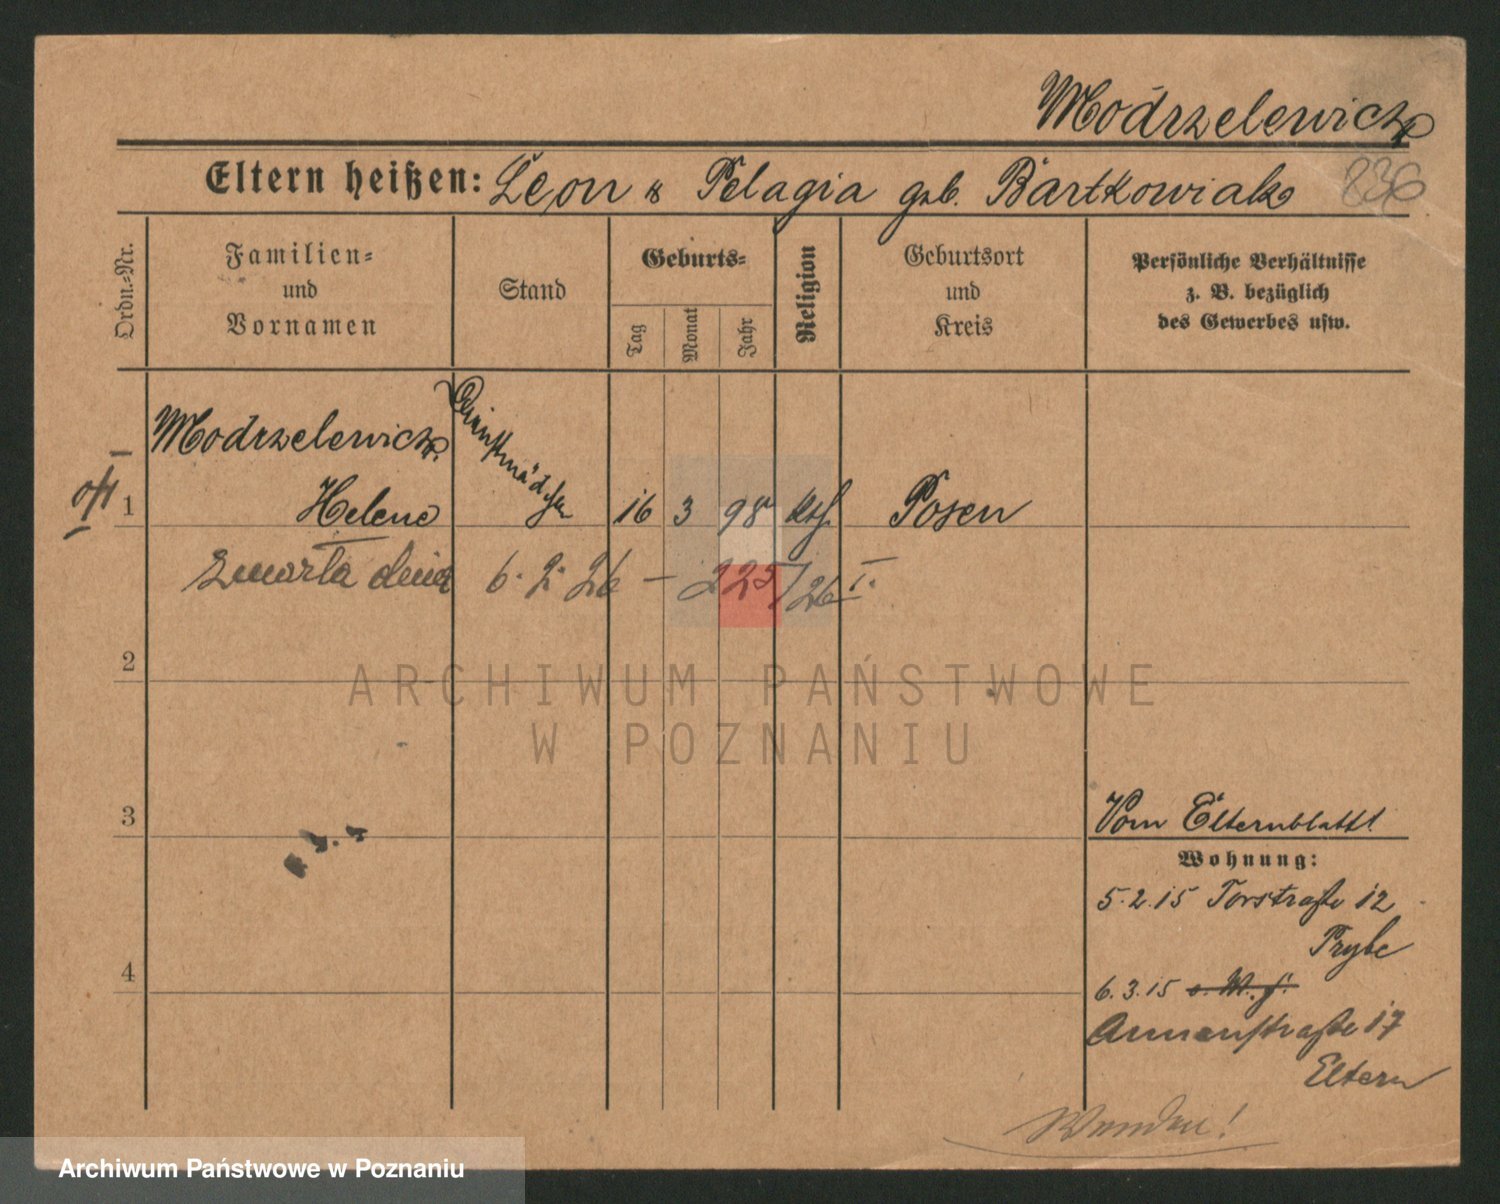 Modrzelewicz
Eltern heißen: Leon & Pelagia geb. Bartkowiak 836
Ordn.-Nr.
Familien-
und
Vornamen
Stand
Geburts-
Tag
Monat
Jahr
Religion
Geburtsort
und
Kreis
Persönliche Verhältnisse
z. B. bezüglich
des Gewerbes usw.
Modrzelewicz
Dienstmädchen
1 Helene 16 3 98 kth. Posen
zmarła dnia 6.2.26 – 225/26 I.
2
ARCHIWUM PAŃSTWOWE
W POZNANIU
3
Vom Elternblatt!
Wohnung:
5.2.15 Torstraße 12
Prybe
4
6.3.15
Annenstraße 17
Eltern
Wenden!
Archiwum Państwowe w Poznaniu